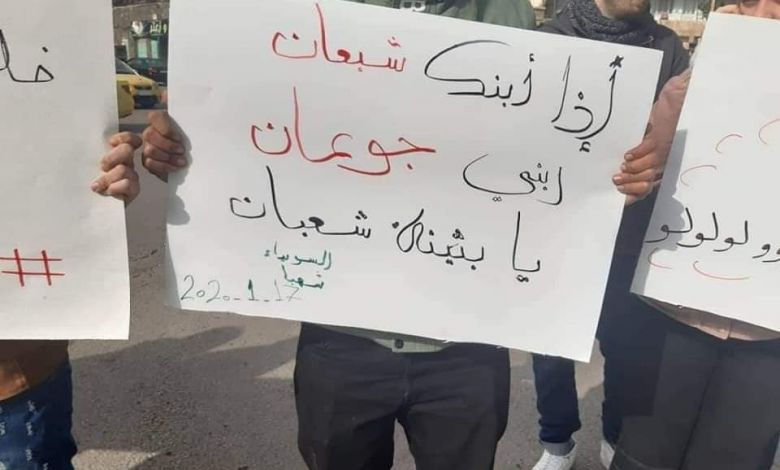 إذا أبنك شبعان
ابني جوعان
يا بثينة شعبان
السويداء
شهبا
2020_1_17
#
وولولولو